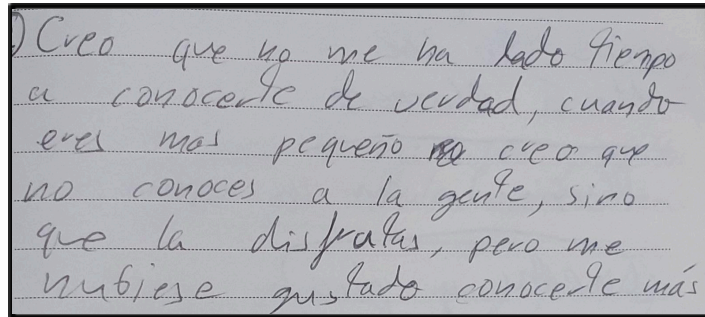 ) Creo que no me ha dado tiempo
a conocerte de verdad, cuando
eres mas pequeño creo que
no conoces a la gente, sino
que la disfrutas, pero me
hubiese gustado conocerte más